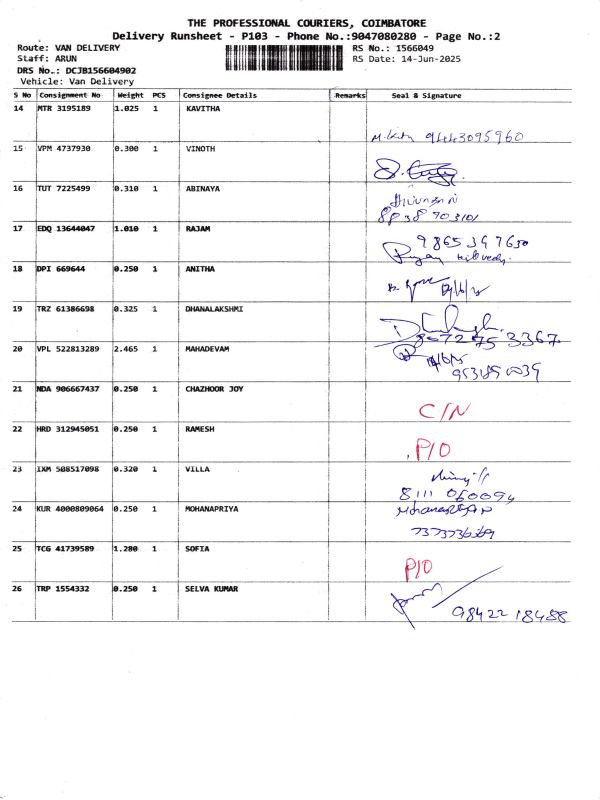 THE PROFESSIONAL COURIERS, COIMBATORE
Delivery Runsheet - P103 - Phone No.:9047080280 - Page No.:2
Route: VAN DELIVERY
RS No.: 1566049
Staff: ARUN
RS Date: 14-Jun-2025
DRS No.: DCJB156604902
Vehicle: Van Delivery
S No Consignment No Weight PCS Consignee Details Remarks Seal & Signature
14 MTR 3195189 1.025 1 KAVITHA
9443095960
15 VPM 4737930 0.300 1 VINOTH
16 TUT 7225499 0.310 1 ABINAYA
8838703101
17 EDQ 13644047 1.010 1 RAJAM
9865347630
18 DPI 669644 0.250 1 ANITHA
19 TRZ 61386698 0.325 1 DHANALAKSHMI
20 VPL 522813289 2.465 1 MAHADEVAM
21 NDA 906667437 0.250 1 CHAZHOOR JOY
C/N
22 HRD 312945051 0.250 1 RAMESH
P/O
23 IXM 508517098 0.320 1 VILLA
8111060094
24 KUR 4000809064 0.250 1 MOHANAPRIYA
25 TCG 41739589 1.280 1 SOFIA
P/O
26 TRP 1554332 0.250 1 SELVA KUMAR
9842218488